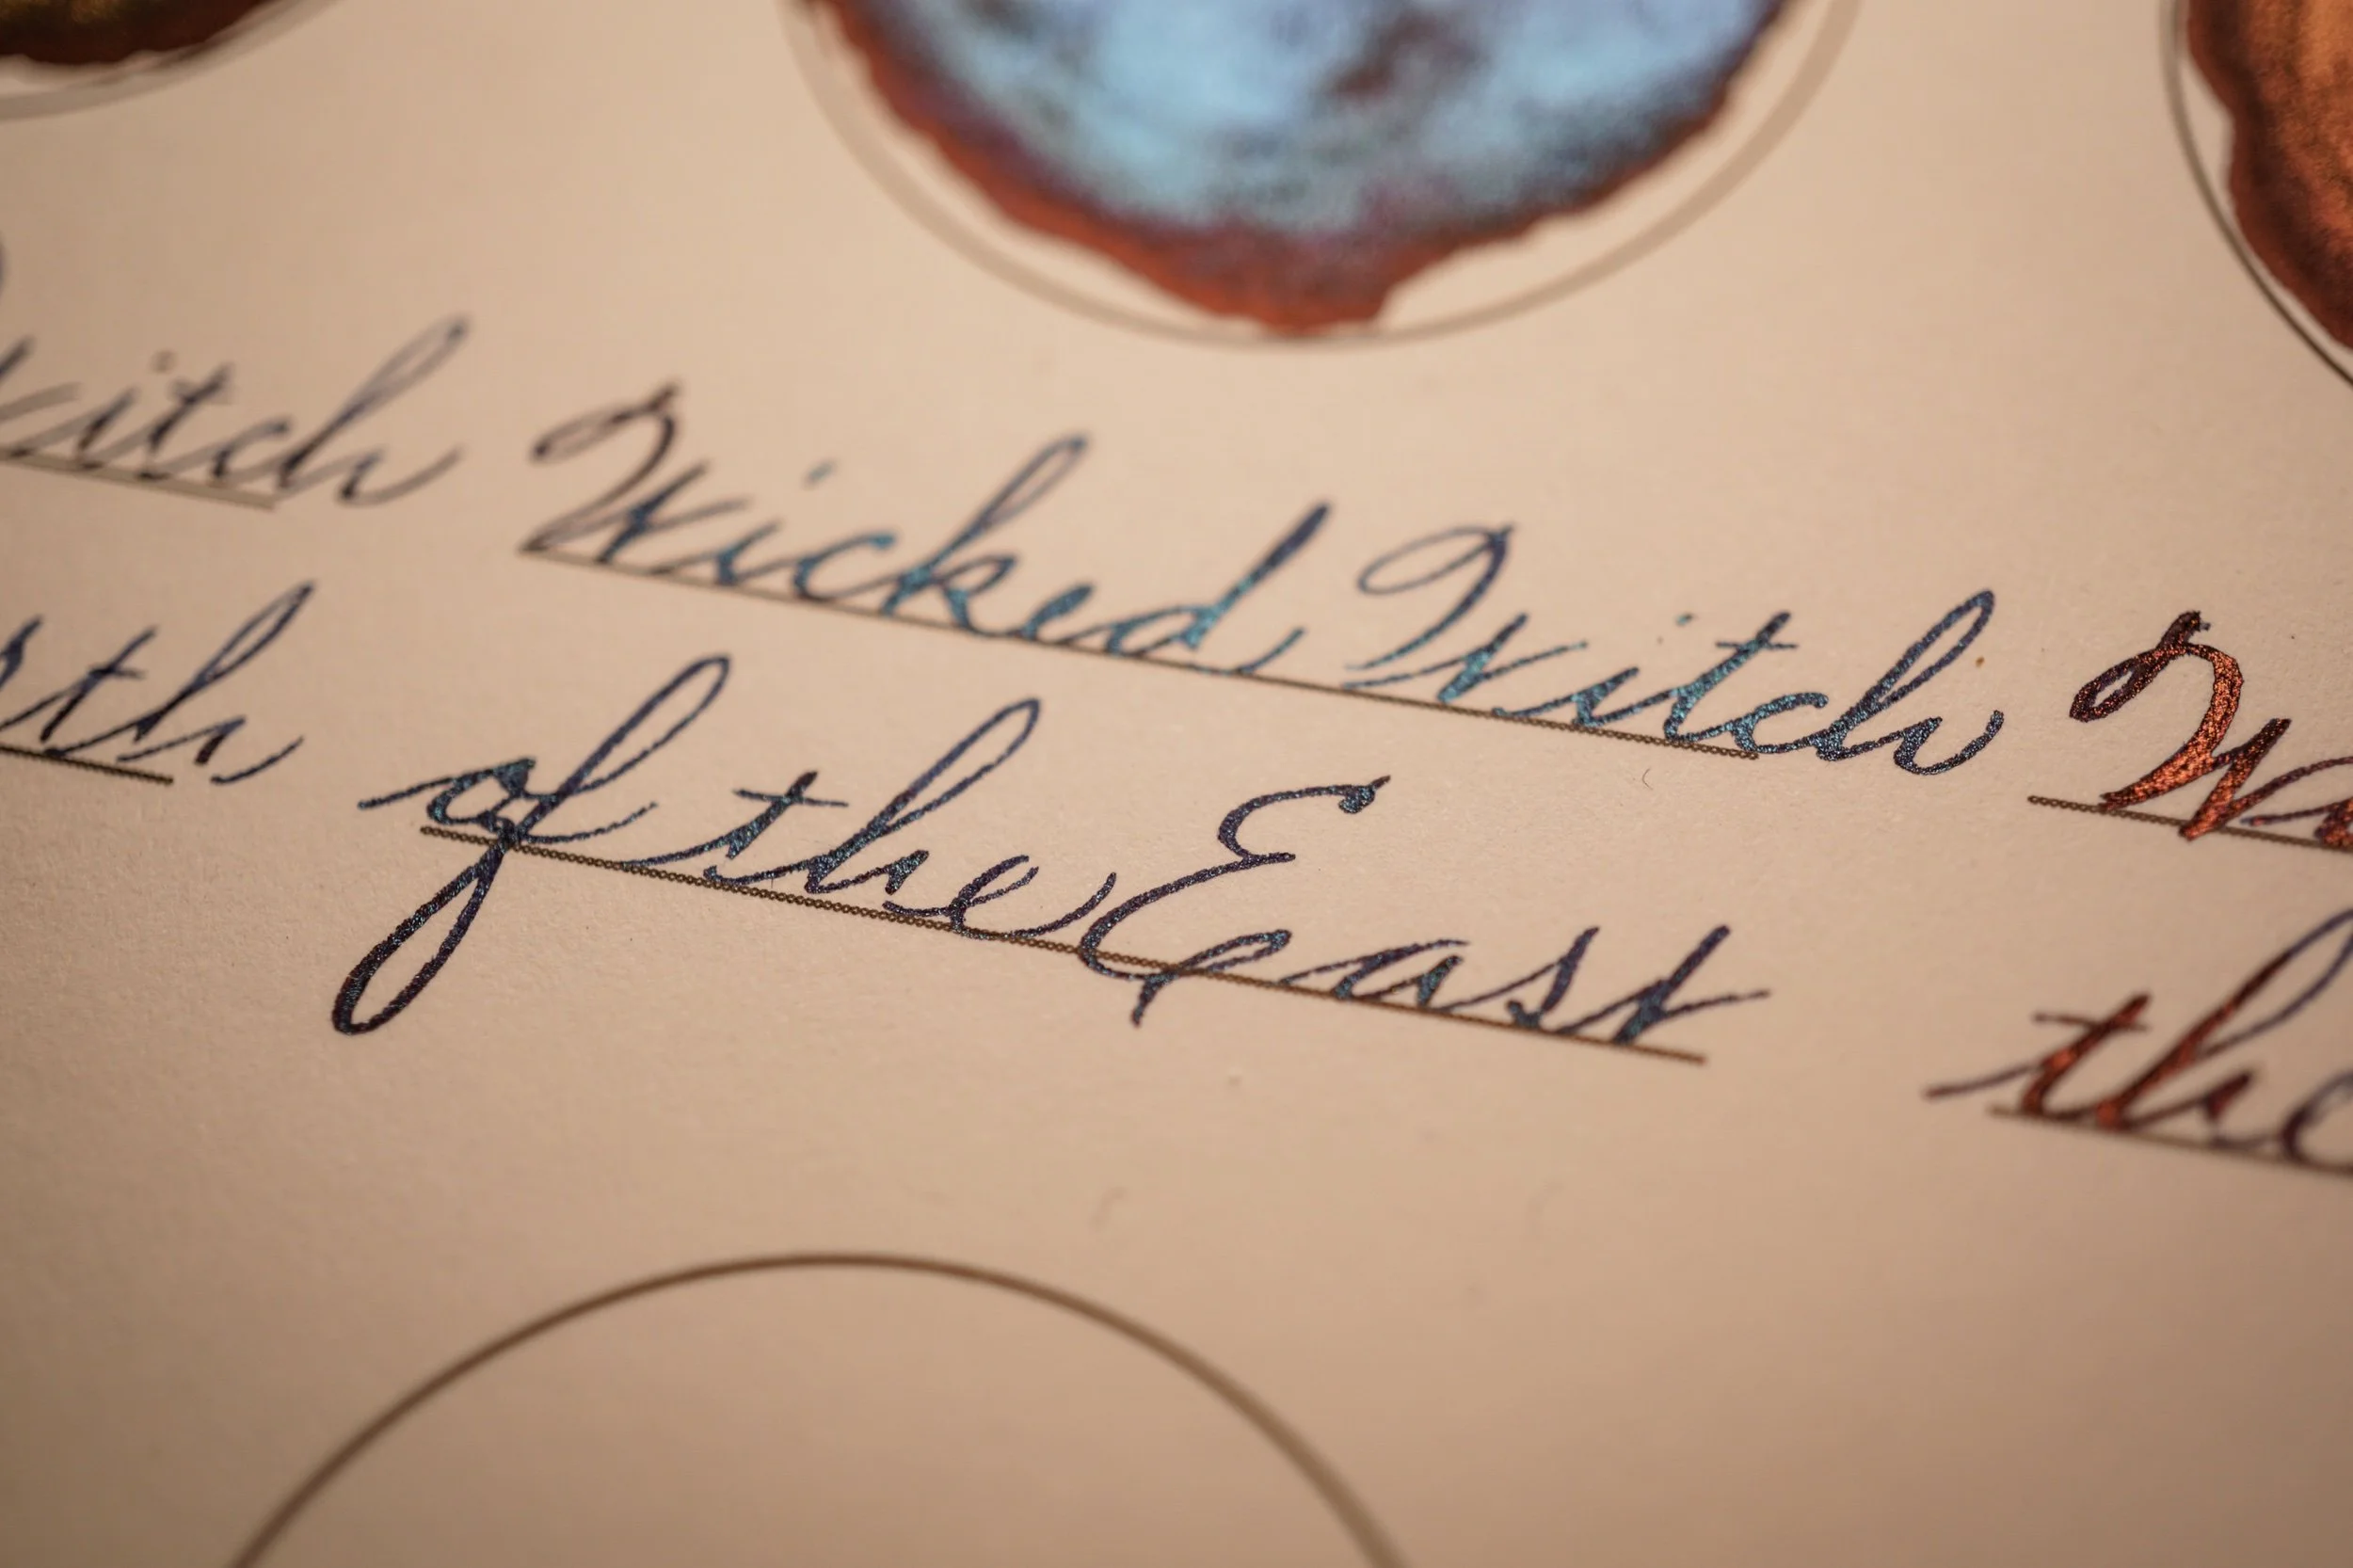 Witch
Wicked Witch
of the East
the